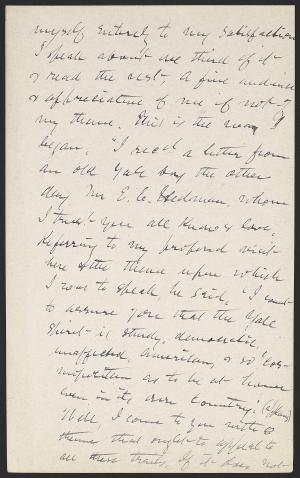 myself entirely to my satisfaction
I speak about one third of it
& read the rest. A fine audience
& appreciative of me if not of
my theme. This is the way I
began. "I read a letter from
an old Yale boy the other
day, Mr. E. C. Stedman, whom
I trust you all know & love,
referring to my proposed visit
here & the theme upon which
I was to speak, he said, "I want
to assure you that the Yale
spirit is sturdy, democratic,
unaffected, American, & so "Cos-
mopolitan as to be at home
even in its own country." (applause)
Well, I come to you with a
theme that ought to appeal to
all these traits. If it does not